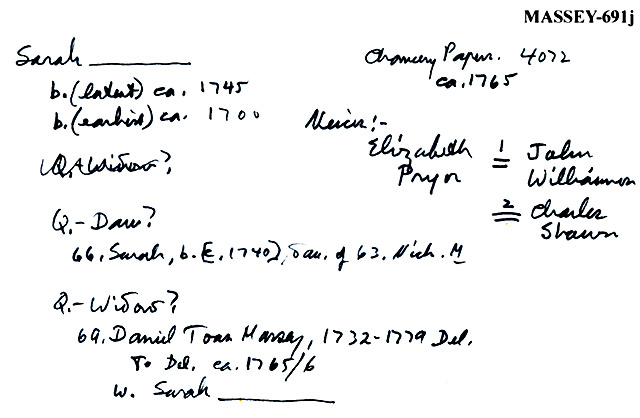 MASSEY-691j
Sarah ________
b. (latest) ca. 1745
b. (earliest) ca. 1700
Q. Widow?
Q.- Dau?
66. Sarah, b. [c. 1740], dau. of 63. Nich. M
Q.- Widow?
69. Daniel Toas Massey, 1732-1779 Del.
To Del. ca. 1765/6
w. Sarah ________
Chancery Paper. 4072
ca. 1765
Neices:-
Elizabeth Pryor
1 = John Williamson
2 = Charles Shawn